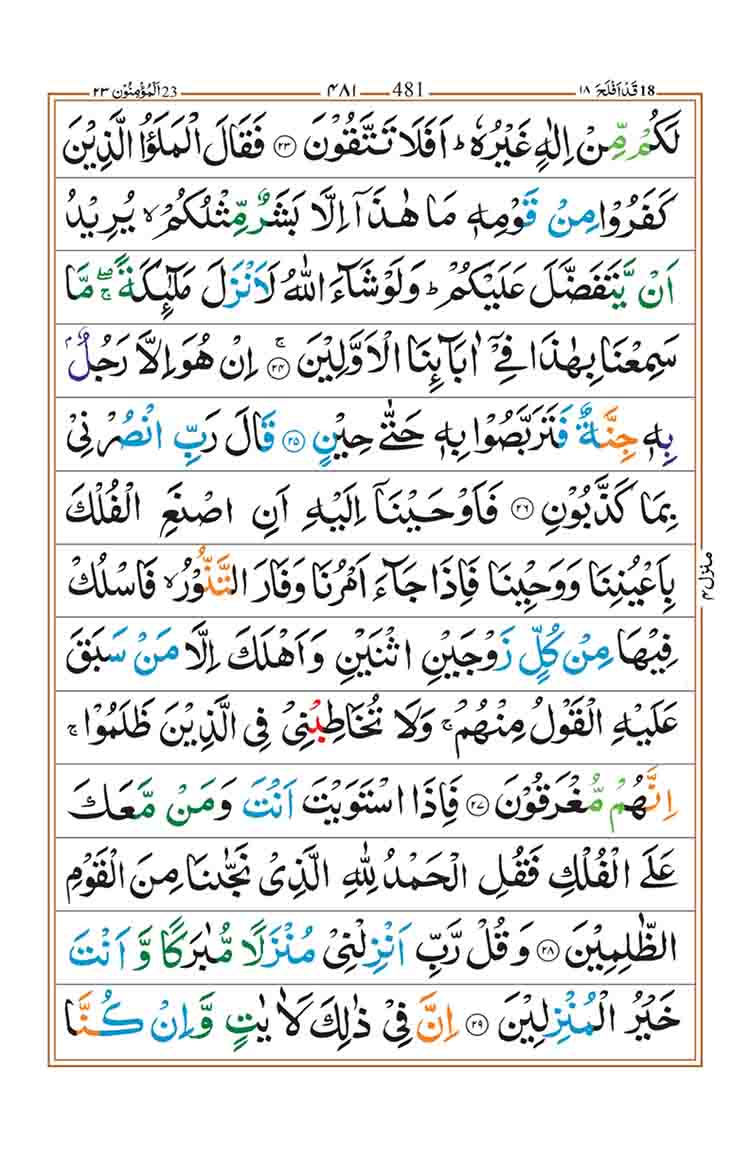 18 قَدْ اَفْلَحَ ١٨ 481 ٤٨١ 23 اَلْمُؤْمِنُوْن ٢٣
لَكُمْ مِّنْ اِلٰهٍ غَيْرُهٗ ؕ اَفَلَا تَتَّقُوْنَ ۝٢٣ فَقَالَ الْمَلَؤُا الَّذِيْنَ
كَفَرُوْا مِنْ قَوْمِهٖ مَا هٰذَاۤ اِلَّا بَشَرٌ مِّثْلُكُمْ ۙ يُرِيْدُ
اَنْ يَّتَفَضَّلَ عَلَيْكُمْ ؕ وَلَوْ شَآءَ اللّٰهُ لَاَنْزَلَ مَلٰٓئِكَةً ۖۚ مَّا
سَمِعْنَا بِهٰذَا فِيْۤ اٰبَآئِنَا الْاَوَّلِيْنَ ۝٢٤ۚ اِنْ هُوَ اِلَّا رَجُلٌۢ
بِهٖ جِنَّةٌ فَتَرَبَّصُوْا بِهٖ حَتّٰى حِيْنٍ ۝٢٥ قَالَ رَبِّ انْصُرْنِيْ
بِمَا كَذَّبُوْنِ ۝٢٦ فَاَوْحَيْنَاۤ اِلَيْهِ اَنِ اصْنَعِ الْفُلْكَ
بِاَعْيُنِنَا وَوَحْيِنَا فَاِذَا جَآءَ اَمْرُنَا وَفَارَ التَّنُّوْرُ ۙ فَاسْلُكْ
فِيْهَا مِنْ كُلٍّ زَوْجَيْنِ اثْنَيْنِ وَاَهْلَكَ اِلَّا مَنْ سَبَقَ
عَلَيْهِ الْقَوْلُ مِنْهُمْ ۚ وَلَا تُخَاطِبْنِيْ فِي الَّذِيْنَ ظَلَمُوْا ۚ
اِنَّهُمْ مُّغْرَقُوْنَ ۝٢٧ فَاِذَا اسْتَوَيْتَ اَنْتَ وَمَنْ مَّعَكَ
عَلَى الْفُلْكِ فَقُلِ الْحَمْدُ لِلّٰهِ الَّذِيْ نَجّٰىنَا مِنَ الْقَوْمِ
الظّٰلِمِيْنَ ۝٢٨ وَقُلْ رَّبِّ اَنْزِلْنِيْ مُنْزَلًا مُّبٰرَكًا وَّاَنْتَ
خَيْرُ الْمُنْزِلِيْنَ ۝٢٩ اِنَّ فِيْ ذٰلِكَ لَاٰيٰتٍ وَّاِنْ كُنَّا
منزل ٤